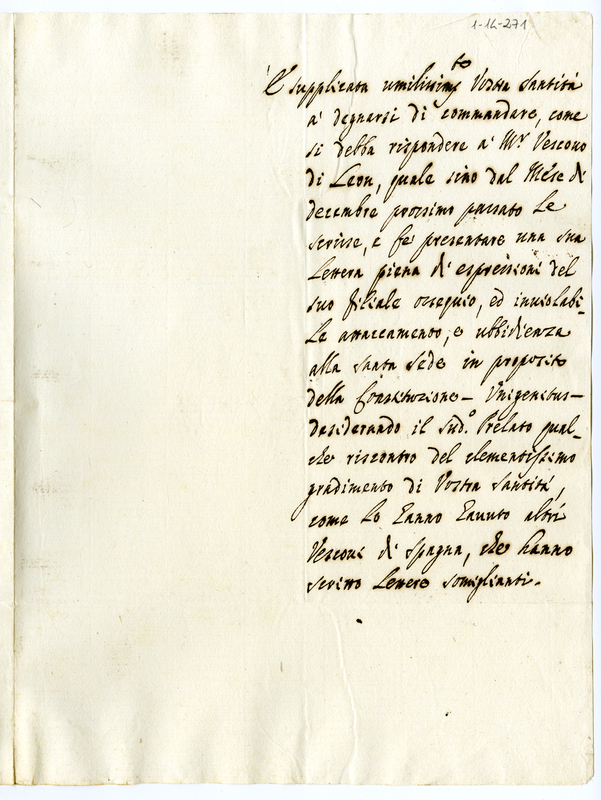 1-16-271
E' supplicata umilissimte Vostra Santità
a' degnarsi di commandare, come
si debba rispondere a' Mr. Vescovo
di Leon, quale sino dal Mese di
decembre prossimo passato Le
scrisse, e fe presentare una sua
Lettera piena di espressioni del
suo filiale ossequio, ed inviolabi-
Le attaccamento, e ubbidienza
alla Santa Sede in proposito
della Constituzione - Unigenitus -
desiderando il sud.o Prelato qual-
che riscontro del clementissimo
gradimento di Vostra Santità,
come Lo hanno havuto altri
Vescovi di Spagna, che hanno
scritto Lettere somiglianti.